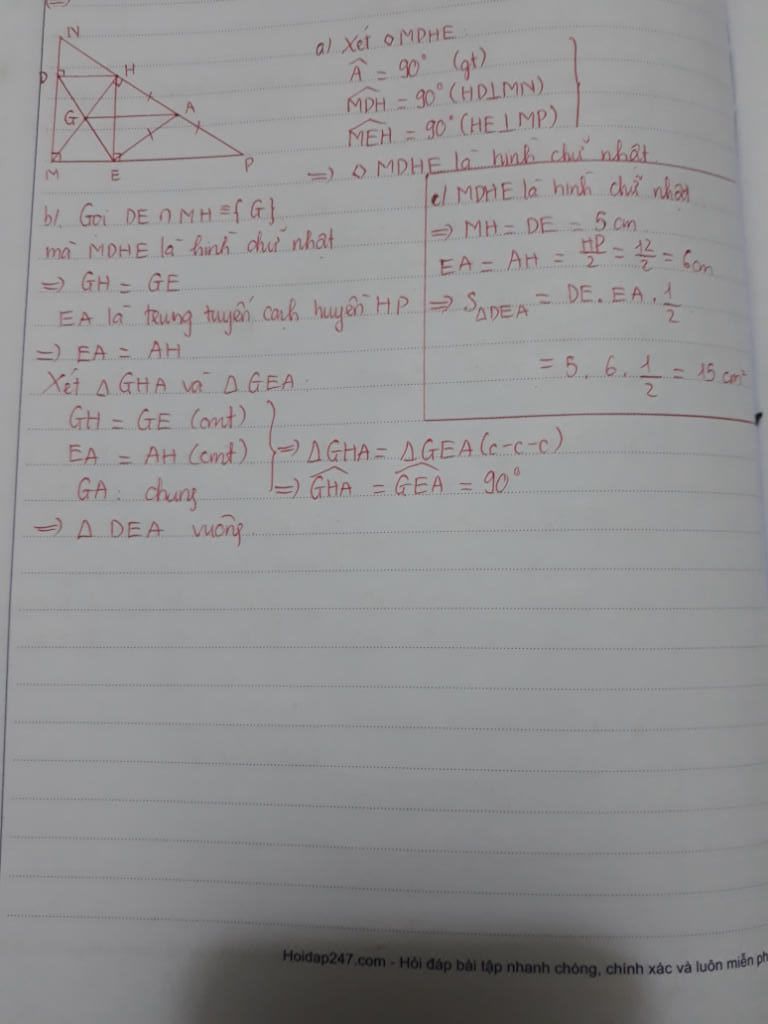 N
D
H
G
A
M
E
P
a) Xét ◇MDHE
Â = 90° (gt)
MDH = 90° (HD⊥MN)
MEH = 90° (HE⊥MP)
=> ◇ MDHE là hình chữ nhật
b). Gọi DE ∩ MH ≡ {G}
mà MDHE là hình chữ nhật
=> GH = GE
EA là trung tuyến cạnh huyền HP
=> EA = AH
Xét Δ GHA và Δ GEA.
GH = GE (cmt)
EA = AH (cmt)
GA: chung
=> ΔGHA = ΔGEA (c-c-c)
=> GHA = GEA = 90°
=> Δ DEA vuông.
c) MDHE là hình chữ nhật
=> MH = DE = 5 cm
EA = AH = HP/2 = 12/2 = 6cm
=> SΔDEA = DE. EA. 1/2
= 5. 6. 1/2 = 15 cm²
Hoidap247.com - Hỏi đáp bài tập nhanh chóng, chính xác và luôn miễn ph